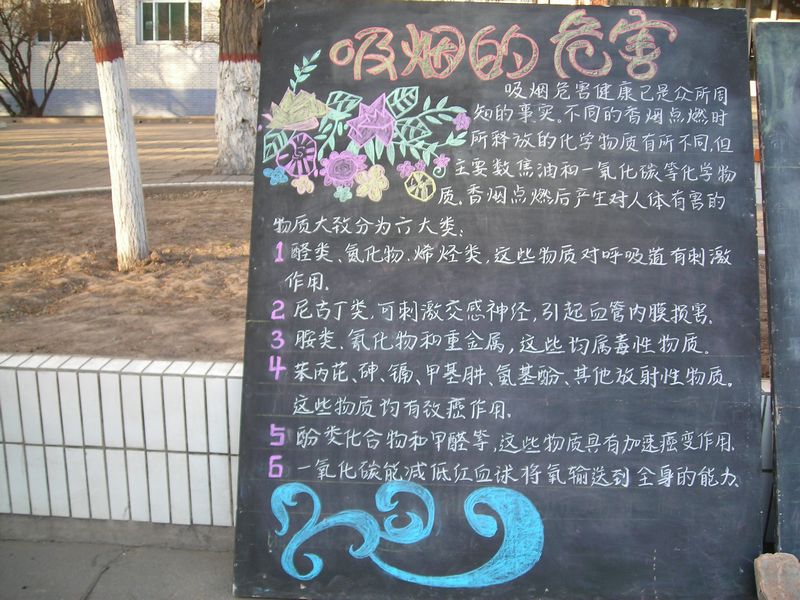 吸烟的危害
吸烟危害健康已是众所周
知的事实。不同的香烟点燃时
所释放的化学物质有所不同,但
主要数焦油和一氧化碳等化学物
质。香烟点燃后产生对人体有害的
物质大致分为六大类:
1 醛类、氮化物、烯烃类,这些物质对呼吸道有刺激
作用。
2 尼古丁类,可刺激交感神经,引起血管内膜损害。
3 胺类、氰化物和重金属,这些均属毒性物质。
4 苯丙芘、砷、镉、甲基肼、氨基酚、其他放射性物质。
这些物质均有致癌作用。
5 酚类化合物和甲醛等,这些物质具有加速癌变作用.
6 一氧化碳能减低红血球将氧输送到全身的能力.